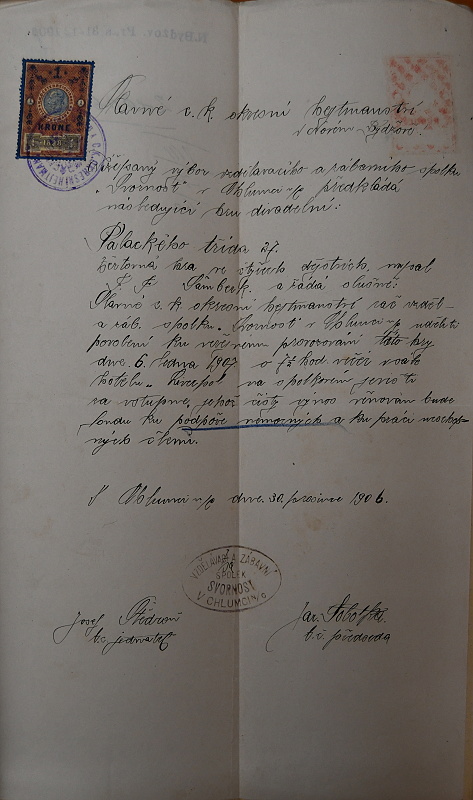 N. Bydžov
1
KRONE
Slavné c. k. okresní hejtmanství
v Novém Bydžově.
výbor vzdělávacího a zábavního spolku
„Svornost" v Chlumci n/c předkládá
následující hru divadelní:
Palackého třída 27.
žertovná hra ve třech dějstvích, napsal
F. F. Šamberk, a žádá slušně:
Slavné c. k. okresní hejtmanství rač vzděl.
a záb. spolku „Svornost" v Chlumci n/c uděliti
povolení ku veřejnému provozování této hry
dne 6. ledna 1907 o ½ hod. večer v sále
hotelu „ na spolkovém jevišti
za vstupné, jehož čistý výnos věnován bude
fondu ku podpoře nemocných a ku práci neschop-
ných členů.
V Chlumci n/c dne 30. prosince 1906.
VZDĚLÁVACÍ A ZÁBAVNÍ
SPOLEK
SVORNOST
V CHLUMCI N/C
Josef
t. č. jednatel
Jar. Sobotka
t. č. předseda